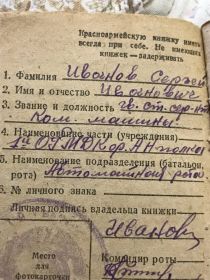 Красноармейскую книжку иметь
всегда при себе. Не имеющих
книжек — задерживать.
1. Фамилия Иванов Сергей
2. Имя и отчество Иванович
3. Звание и должность гв. ст. сер-нт
Ком. машины
4. Наименование части (учреждения)
5. Наименование подразделения (батальон,
рота) Автомашинн рота
6. № личного знака
Личная подпись владельца книжки
Иванов
Место
для
фотокарточки
Командир роты